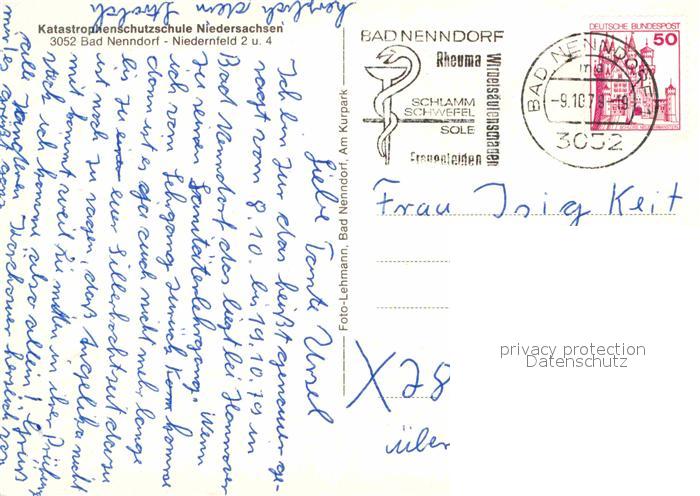 Katastrophenschutzschule Niedersachsen
3052 Bad Nenndorf - Niedernfeld 2 u. 4
Liebe Tante Ursel
Ich bin zur das heißt genauer ge-
sagt vom 8.10. bis 19.10.79 in
Bad Nenndorf das liegt bei Hannover
zu einem Sanitätslehrgang. Wenn
ich vom Lehrgang zurück komme
dann ist es ja auch nicht mehr lange
bis zu eurer Silberhochzeit dazu
ist noch zu sagen, daß Angelika nicht
mit kommt weil Sie mitten in ihrer Prüfung
steckt ich komme also allein! Grüß
alle
herzlich dein
Foto-Lehmann, Bad Nenndorf, Am Kurpark
BAD NENNDORF
Rheuma
Wirbelsäulenschäden
SCHLAMM
SCHWEFEL
SOLE
Frauenleiden
DEUTSCHE BUNDESPOST
50
BAD NENNDORF 1
md
-9.10.79-19
3052
Frau Isig Keit
privacy protection
Datenschutz
X 28
über